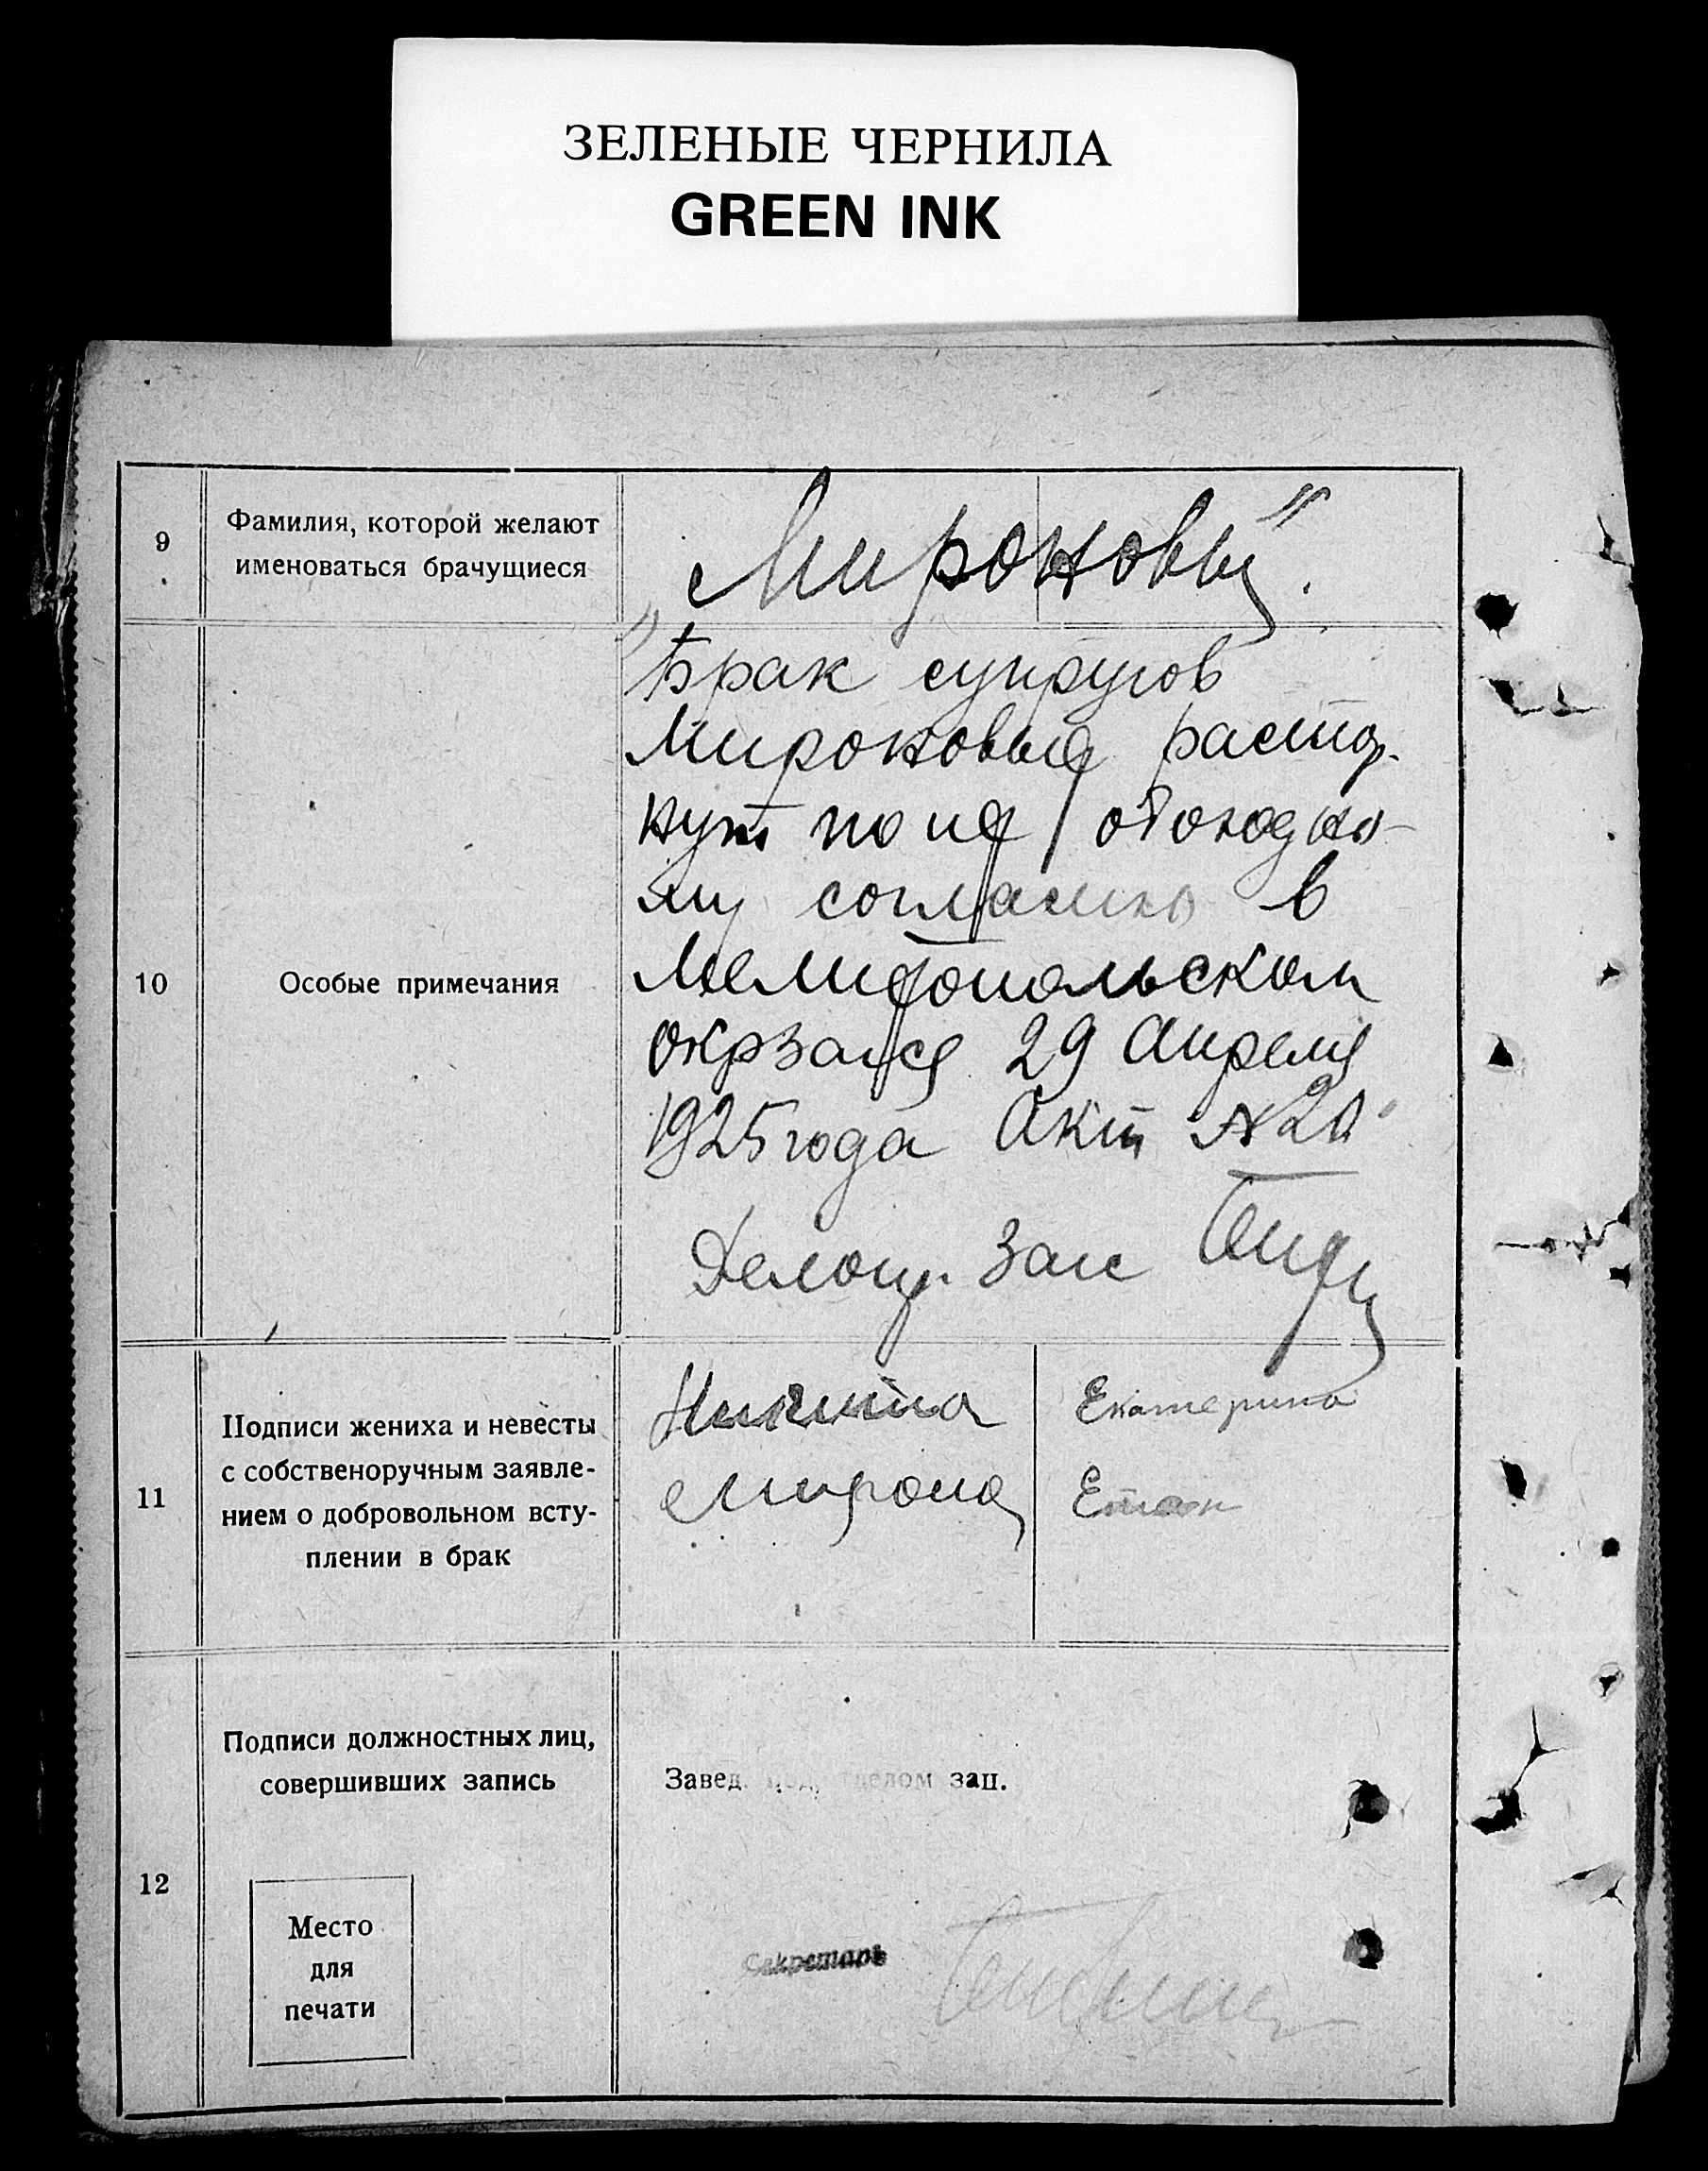 ЗЕЛЕНЫЕ ЧЕРНИЛА
GREEN INK
9
Фамилия, которой желают
именоваться брачущиеся
Мироновы
10
Особые примечания
"Брак супругов
Мироновых растор-
нут по их обоюдно-
му согласию в
Мелитопольском
Окрзагсе 29 Апреля
1925 года Акт №
Делопр. Загс
11
Подписи жениха и невесты
с собственоручным заявле-
нием о добровольном всту-
плении в брак
Никита
Екатерина
12
Подписи должностных лиц,
совершивших запись
Завед. подотделом зап.
Секретарь
Место
для
печати